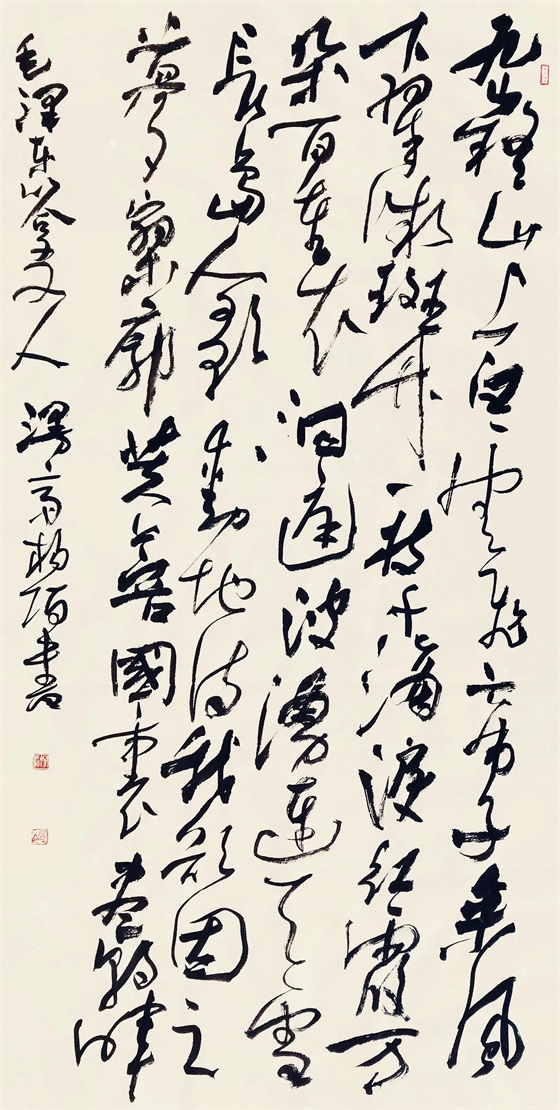 九嶷山上白雲飛帝子乘風
下翠微斑竹一枝千滴淚紅霞万
朵百重衣洞庭波湧連天雪
長島人歌動地詩我欲因之
夢寥廓芙蓉國裏盡朝暉
毛澤東答友人 書